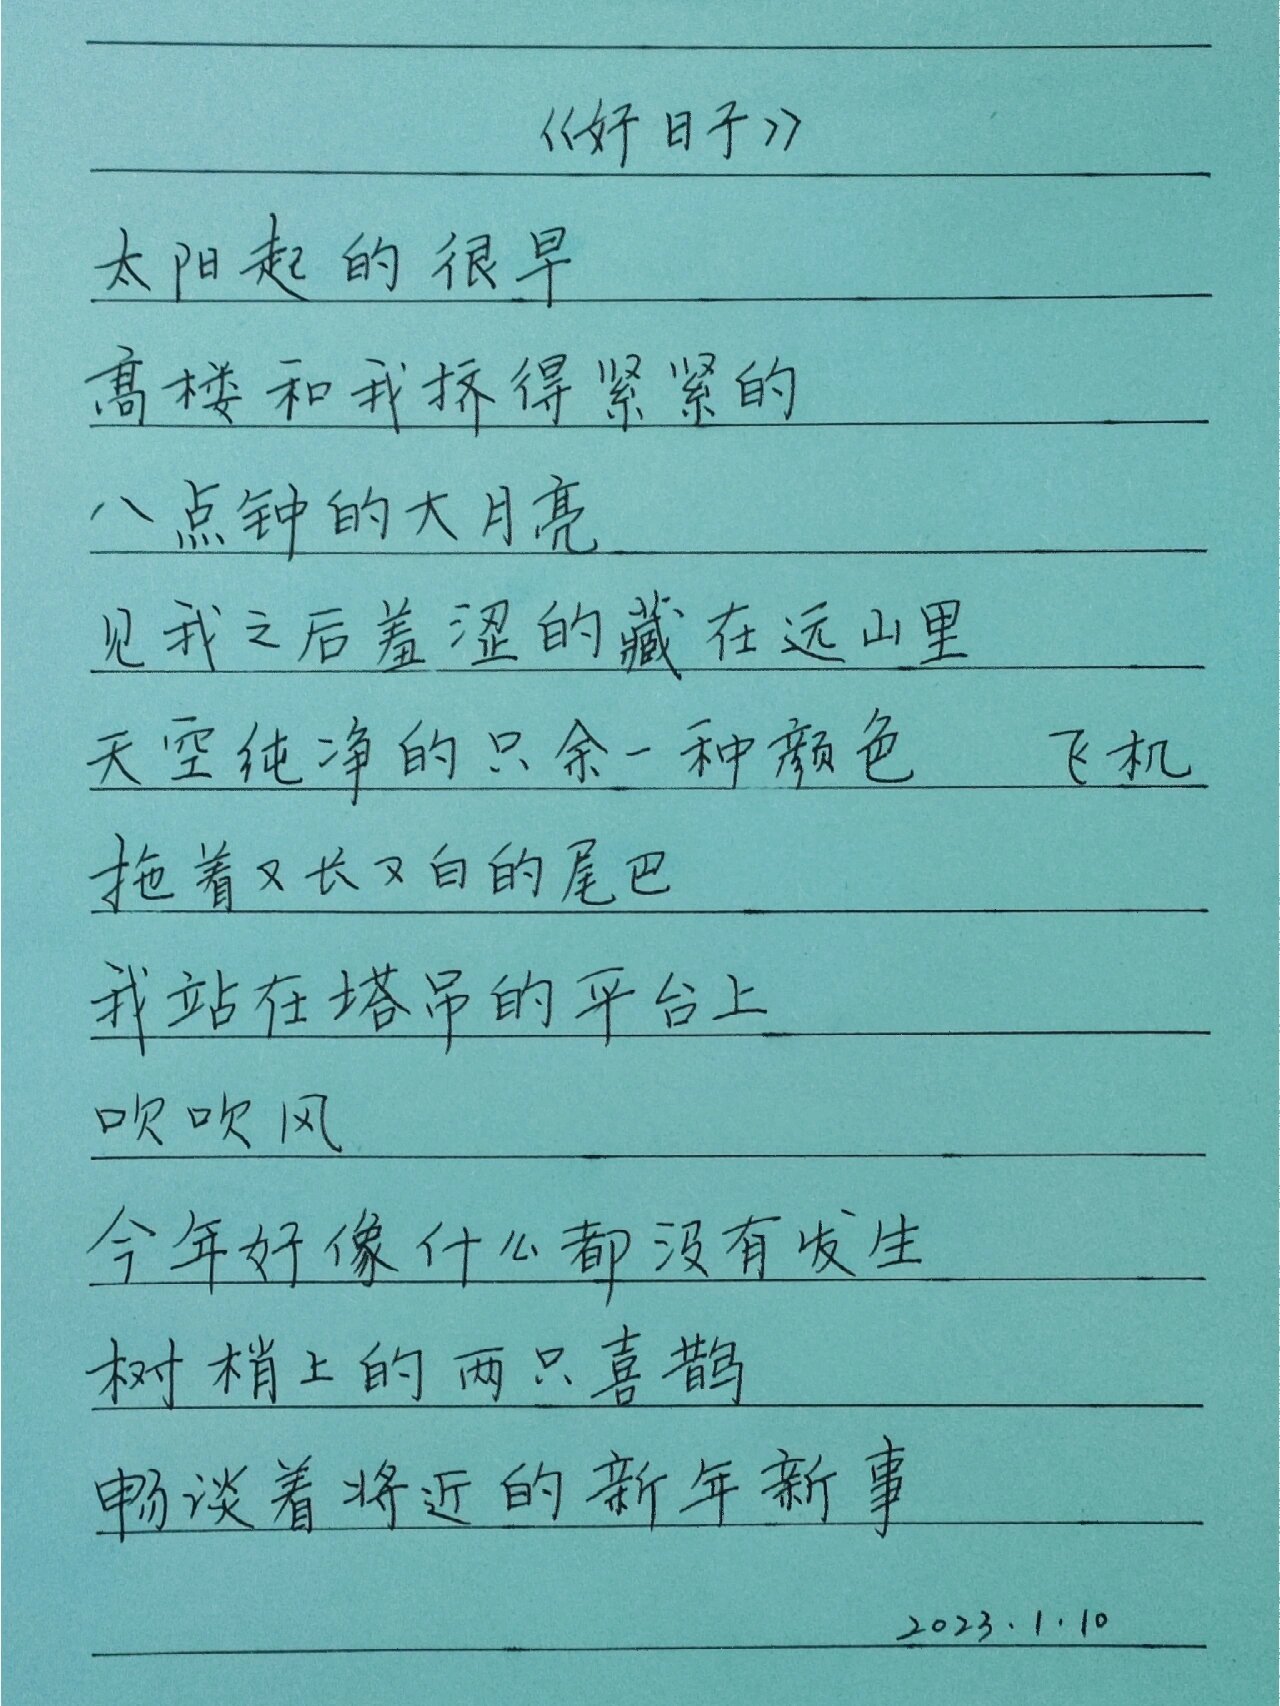 《好日子》
太阳起的很早
高楼和我挤得紧紧的
八点钟的大月亮
见我之后羞涩的藏在远山里
天空纯净的只余一种颜色 飞机
拖着又长又白的尾巴
我站在塔吊的平台上
吹吹风
今年好像什么都没有发生
树梢上的两只喜鹊
畅谈着将近的新年新事
2023.1.10